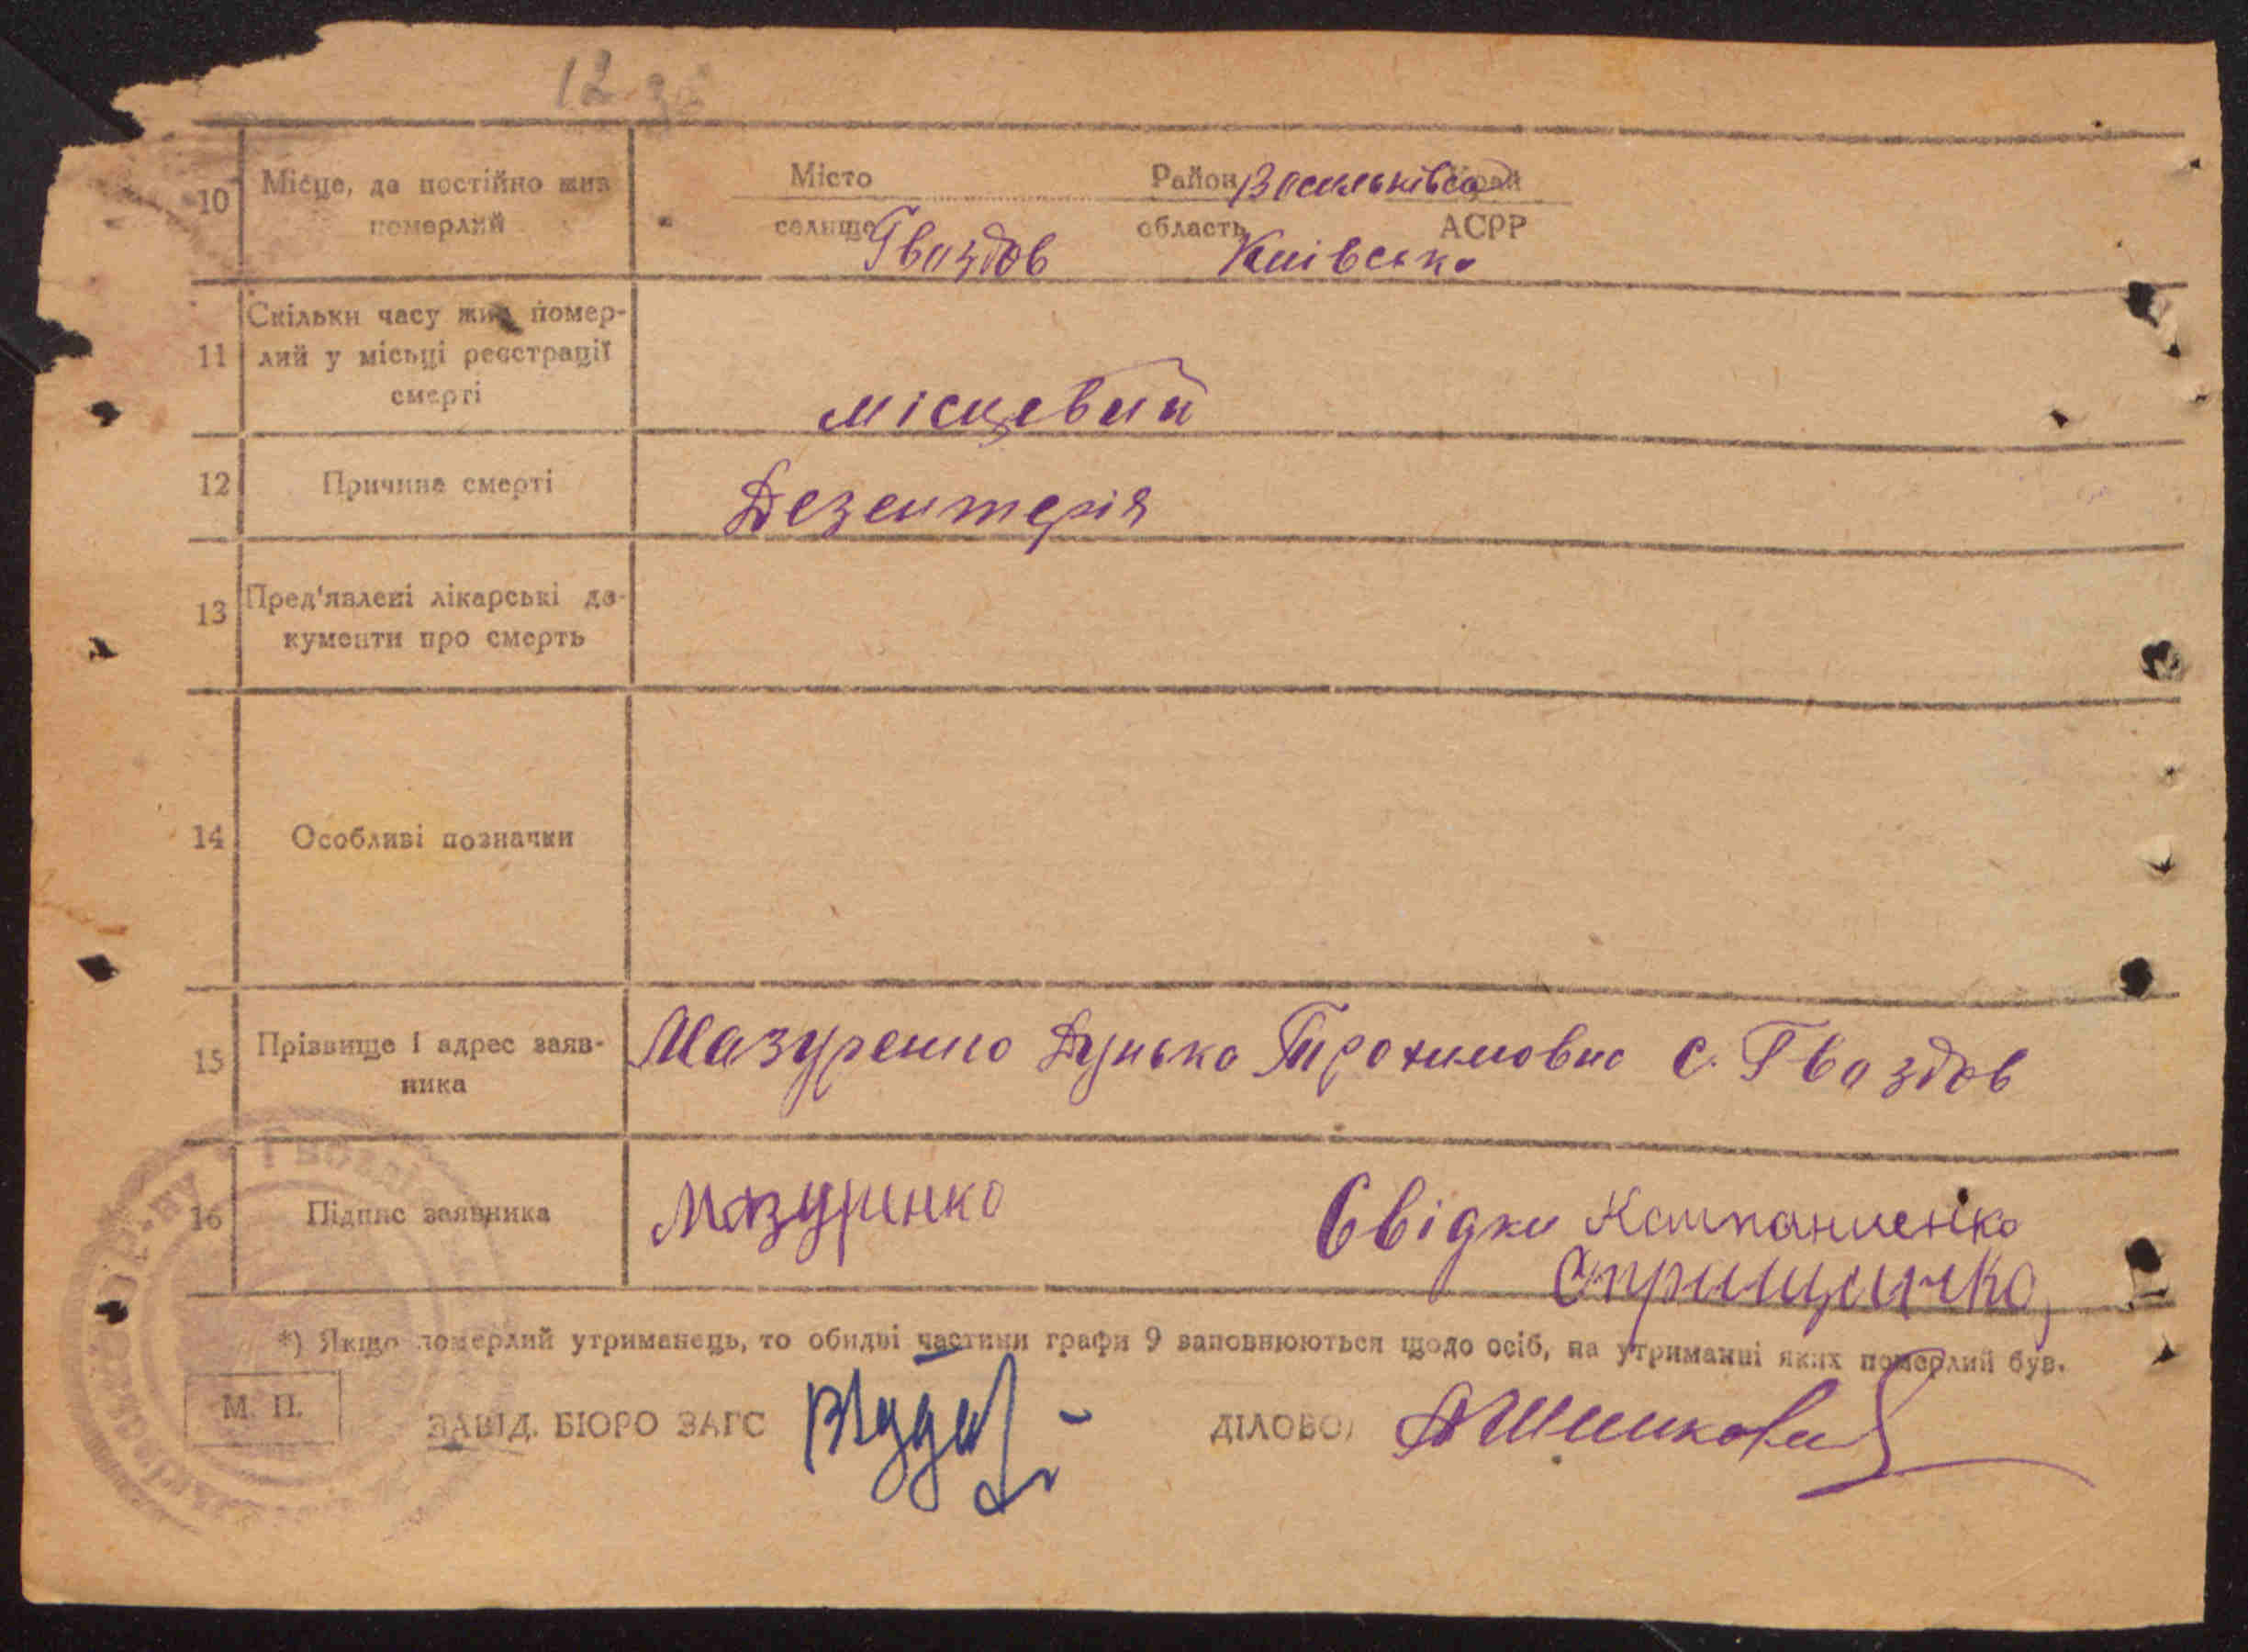 12
10 Місце, де постійно жив Місто Район Васильківськ Край
померлий селище Гвоздов область Київська АСРР
11 Скільки часу жив помер-
лий у місьці реєстрації
смерті місцевий
12 Причина смерті Дезентерія
13 Пред'явлені лікарські до-
кументи про смерть
14 Особливі позначки
15 Прізвище і адрес заяв-
ника Мазуренко Дунька Трохимовна с. Гвоздов
16 Підпис заявника Мазуренко Свідки Компаниенко
Онрищенко
*) Якщо померлий утриманець, то обидві частини графи 9 заповнюються щодо осіб, на утриманні яких померлий був.
М. П.
ЗАВІД. БЮРО ЗАГС ДІЛОВОД